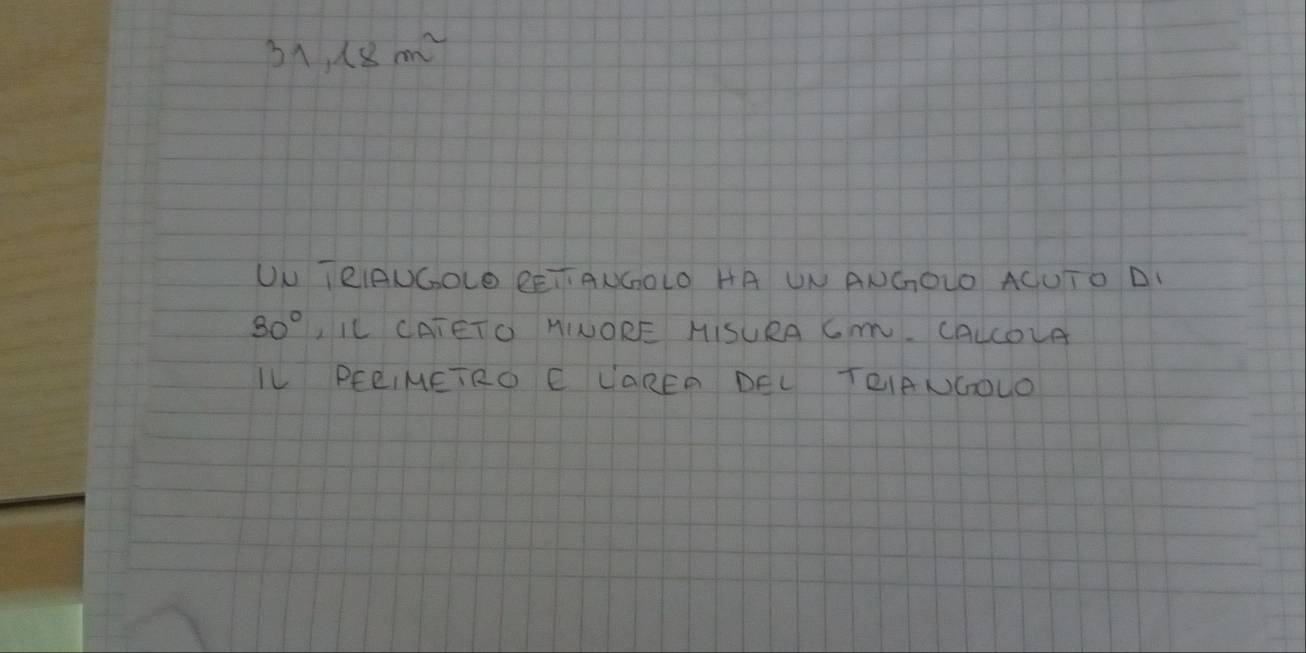 31,18 m²
UN TRIANGOLO RETTANGOLO HA UN ANGOLO ACUTO DI
30°, IL CATETO MINORE MISURA 6m. CALCOLA
IL PERIMETRO E L'AREA DEL TRIANGOLO